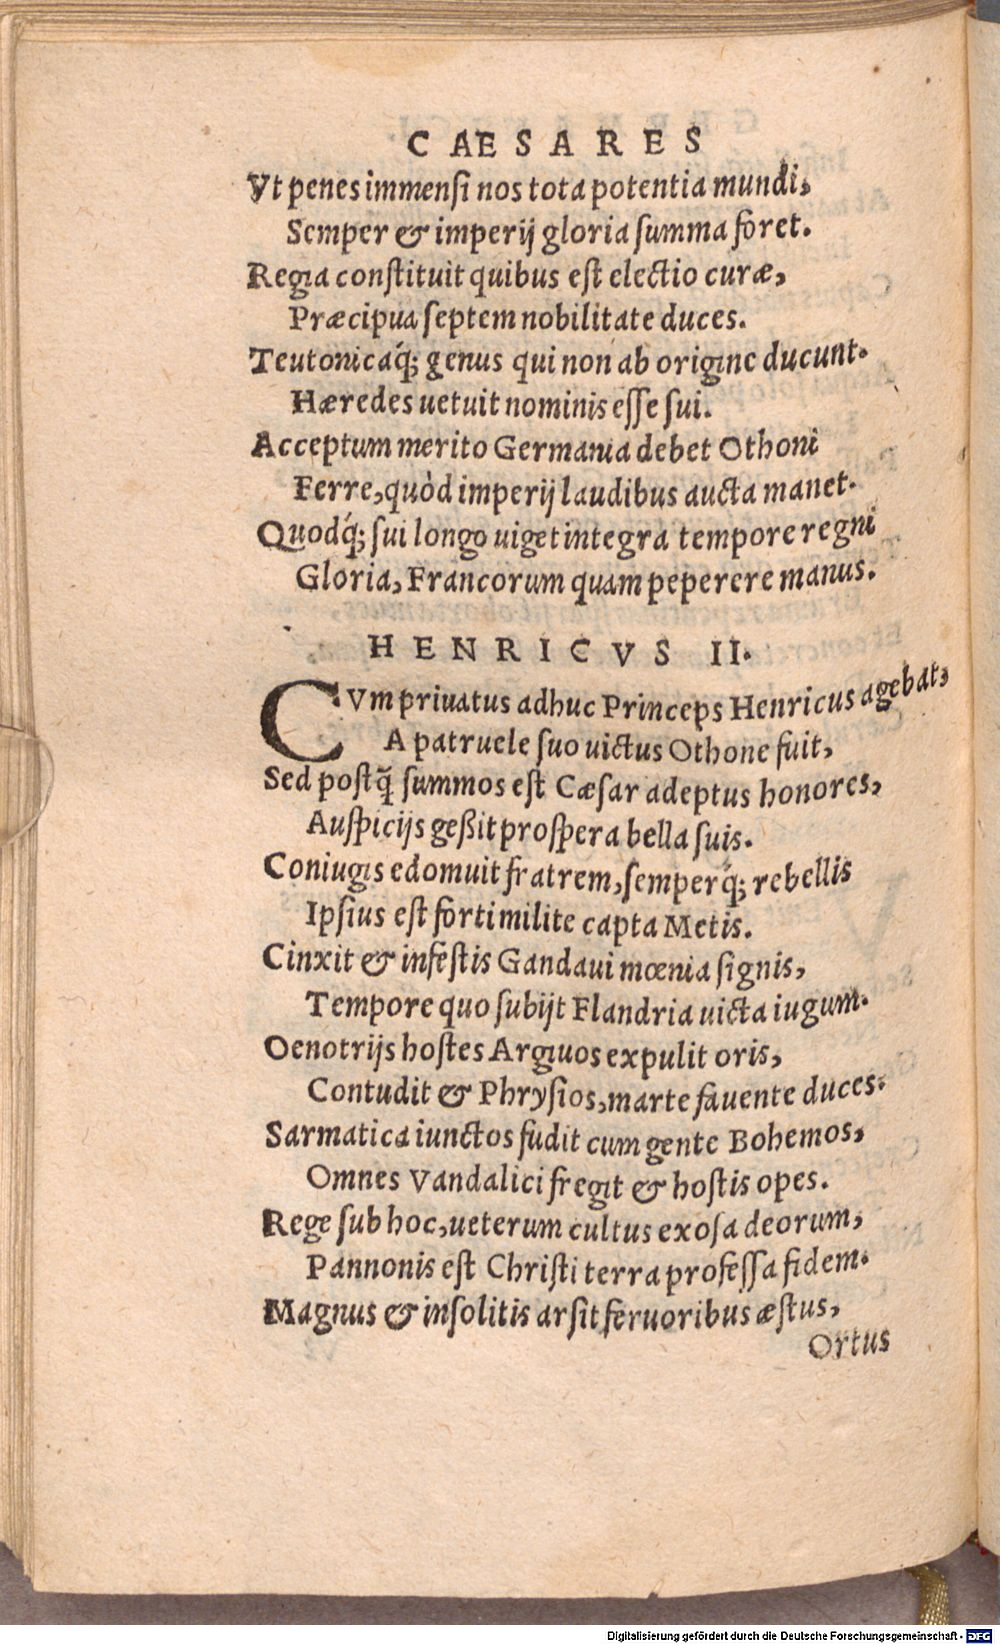 CAESARES
Vt penes immensi nos tota potentia mundi,
Semper & imperij gloria summa foret.
Regia constituit quibus est electio curæ,
Præcipua septem nobilitate duces.
Teutonicaq́; genus qui non ab origine ducunt.
Hæredes uetuit nominis esse sui.
Acceptum merito Germania debet Othoni
Ferre, quòd imperij laudibus aucta manet.
Quodq́; sui longo uiget integra tempore regni
Gloria, Francorum quam peperere manus.
HENRICVS II.
CVm priuatus adhuc Princeps Henricus agebat,
A patruele suo uictus Othone fuit,
Sed postq̃ summos est Cæsar adeptus honores,
Auspicijs geßit prospera bella suis.
Coniugis edomuit fratrem, semperq́; rebellis
Ipsius est forti milite capta Metis.
Cinxit & infestis Gandaui mœnia signis,
Tempore quo subijt Flandria uicta iugum.
Oenotrijs hostes Argiuos expulit oris,
Contudit & Phrysios, marte fauente duces.
Sarmatica iunctos fudit cum gente Bohemos,
Omnes Vandalici fregit & hostis opes.
Rege sub hoc, ueterum cultus exosa deorum,
Pannonis est Christi terra professa fidem.
Magnus & insolitis arsit feruoribus æstus,
Ortus
Digitalisierung gefördert durch die Deutsche Forschungsgemeinschaft - DFG